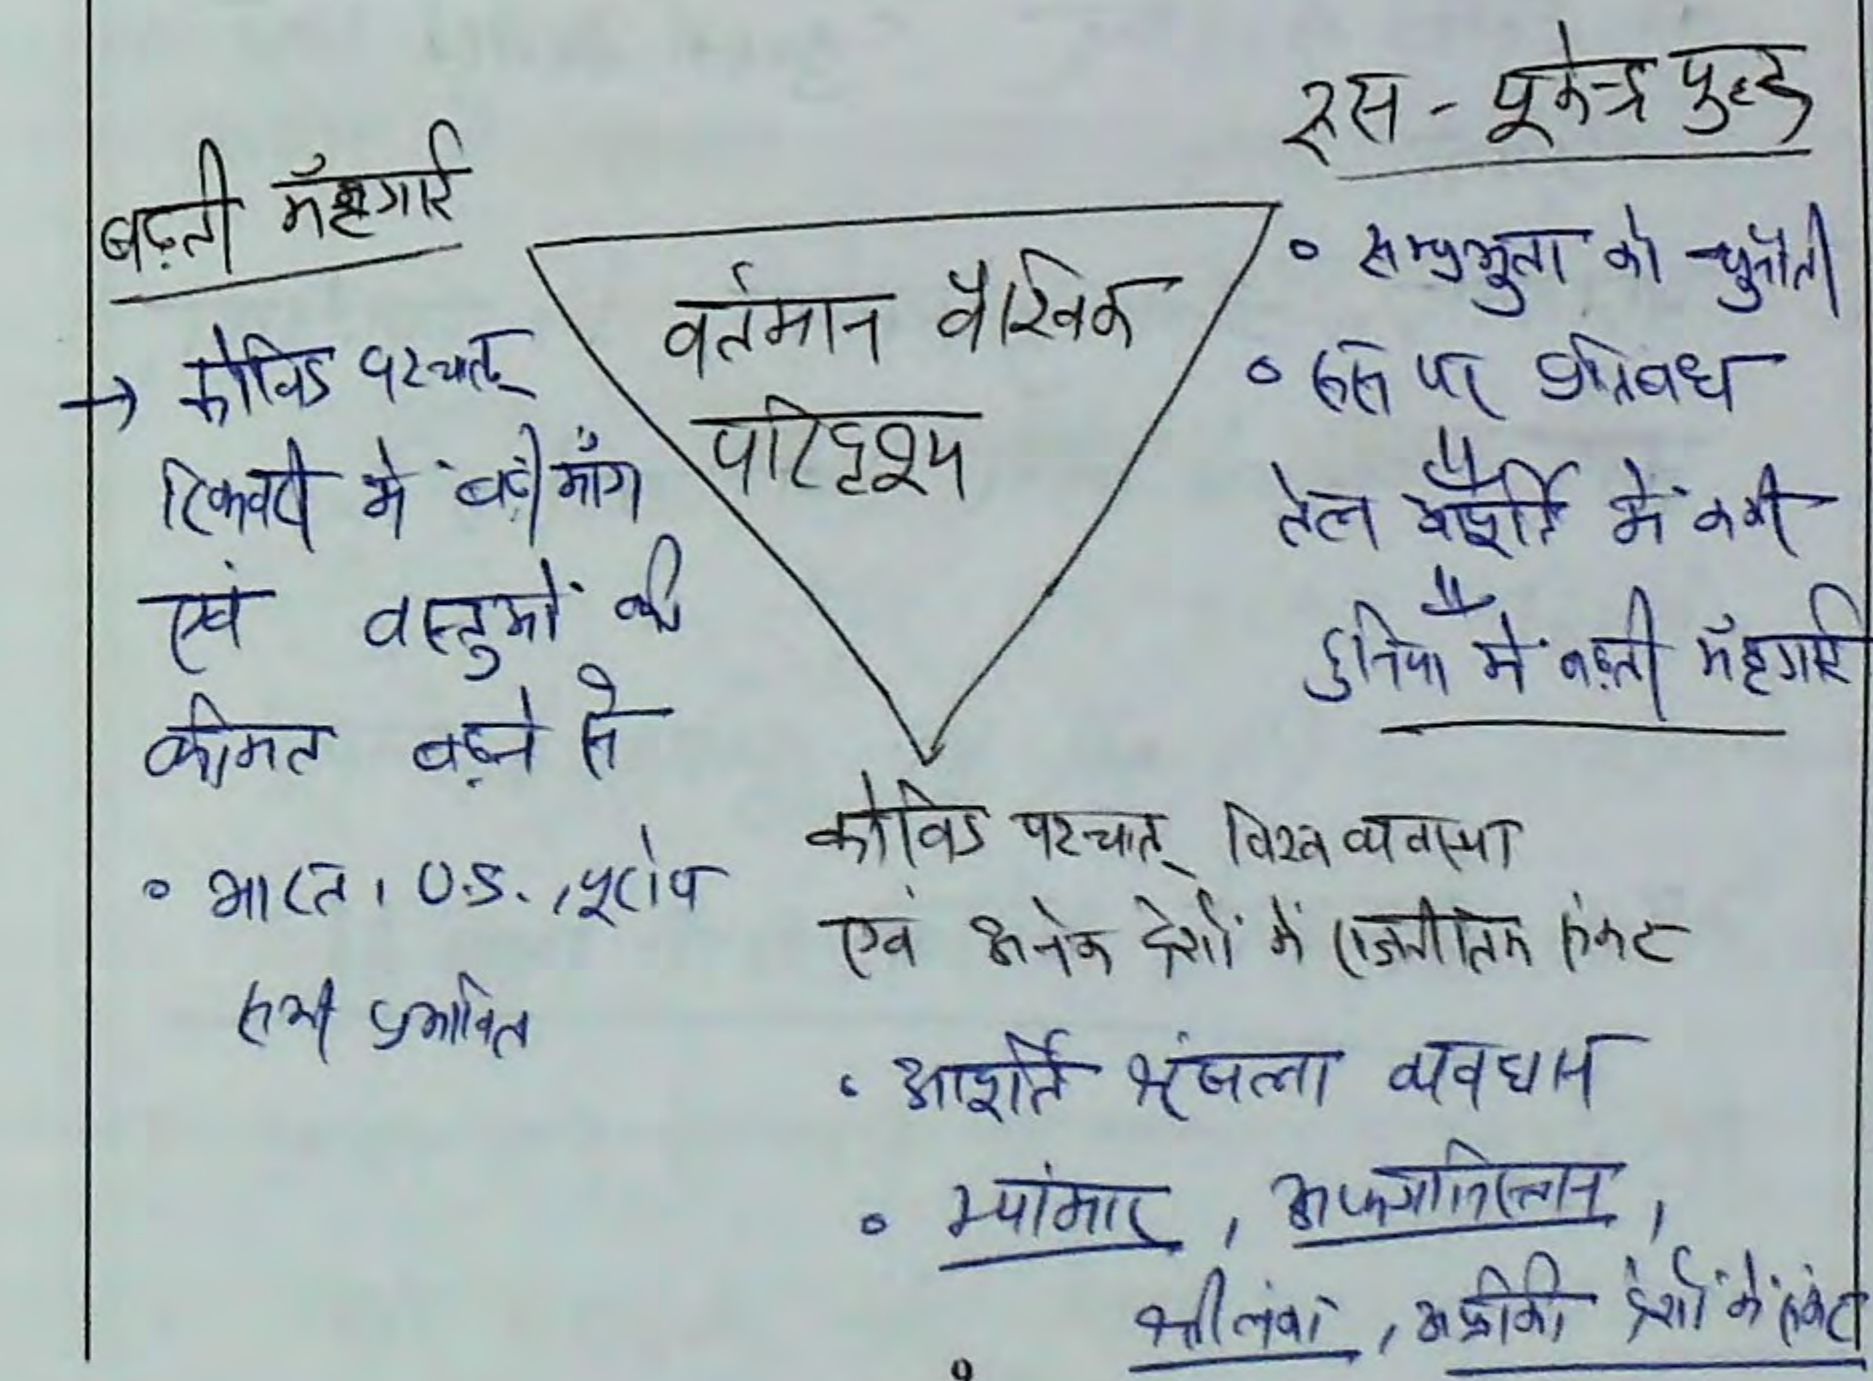 बढ़ती मँहगाई
→ कोविड पश्चात्
रिकवरी में बढ़ी माँग
एवं वस्तुओं की
कीमत बढ़ने से
० भारत, U.S., यूरोप
सभी प्रभावित
वर्तमान वैश्विक
परिदृश्य
रूस - यूक्रेन युद्ध
० सम्प्रभुता को चुनौती
० रूस पर प्रतिबंध
तेल आपूर्ति में कमी
दुनिया में बढ़ती मँहगाई
कोविड पश्चात् विश्व व्यवस्था
एवं अनेक देशों में राजनीतिक संकट
० आपूर्ति श्रृंखला व्यवधान
० म्यांमार, अफगानिस्तान,
श्रीलंका, अफ्रीकी देशों में संकट
०